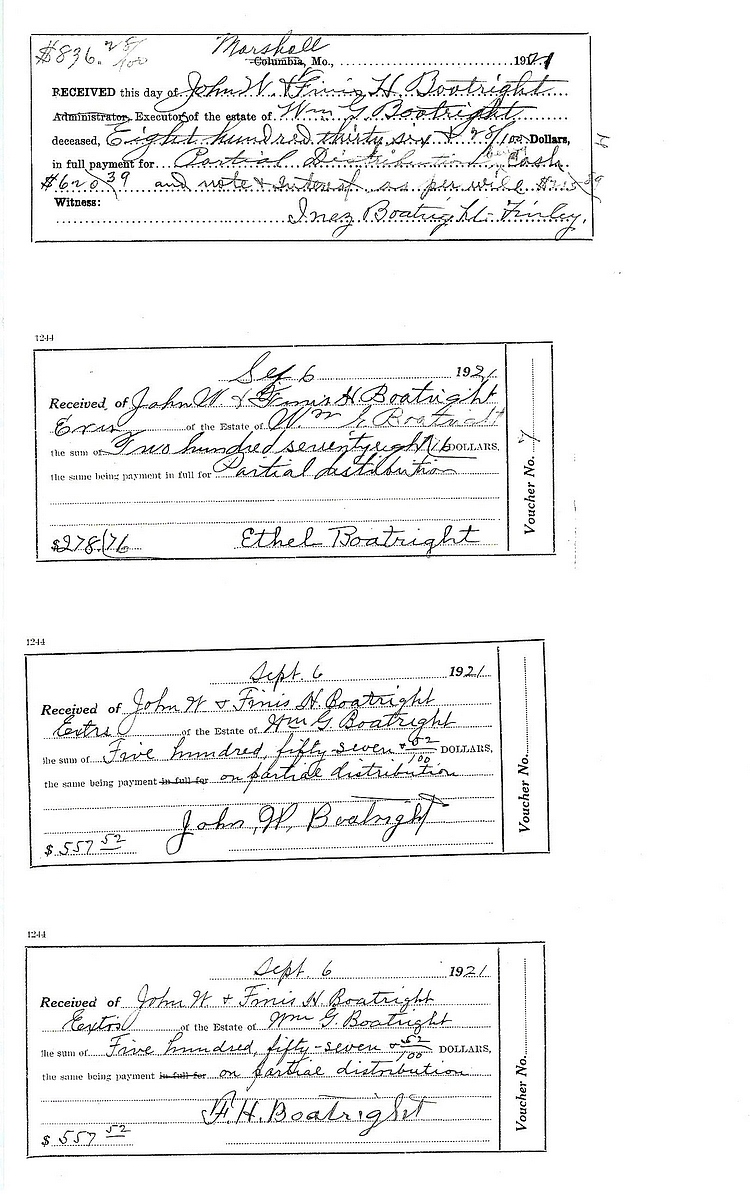 $836. 28/100 Marshall
Columbia, Mo., 1921
RECEIVED this day of John W. & Finis H. Boatright
Administrator, Executor of the estate of Wm G Boatright
deceased, Eight hundred thirty six & 28/100 Dollars,
in full payment for Partial Distribution Cash
$620 39 and note & Interest as per will
Witness:
Inez Boatright Finley,
1244
Sep 6 1921
Received of John W & Finis H Boatright
Exrs of the Estate of Wm G Boatright
the sum of Two hundred seventyeight 76 DOLLARS,
the same being payment in full for Partial distribution
$278 76 Ethel Boatright
Voucher No. 7
1244
Sept. 6 1921
Received of John W & Finis H. Boatright
Extrs of the Estate of Wm G. Boatright
the sum of Five hundred, fifty-seven & 52/100 DOLLARS,
the same being payment in full for on partial distribution
John, W, Boatright
$ 557 52
Voucher No.
1244
Sept. 6 1921
Received of John W & Finis H. Boatright
Extrs of the Estate of Wm G. Boatright
the sum of Five hundred, fifty-seven & 52/100 DOLLARS,
the same being payment in full for on partial distribution
F. H. Boatright
$ 557 52
Voucher No.